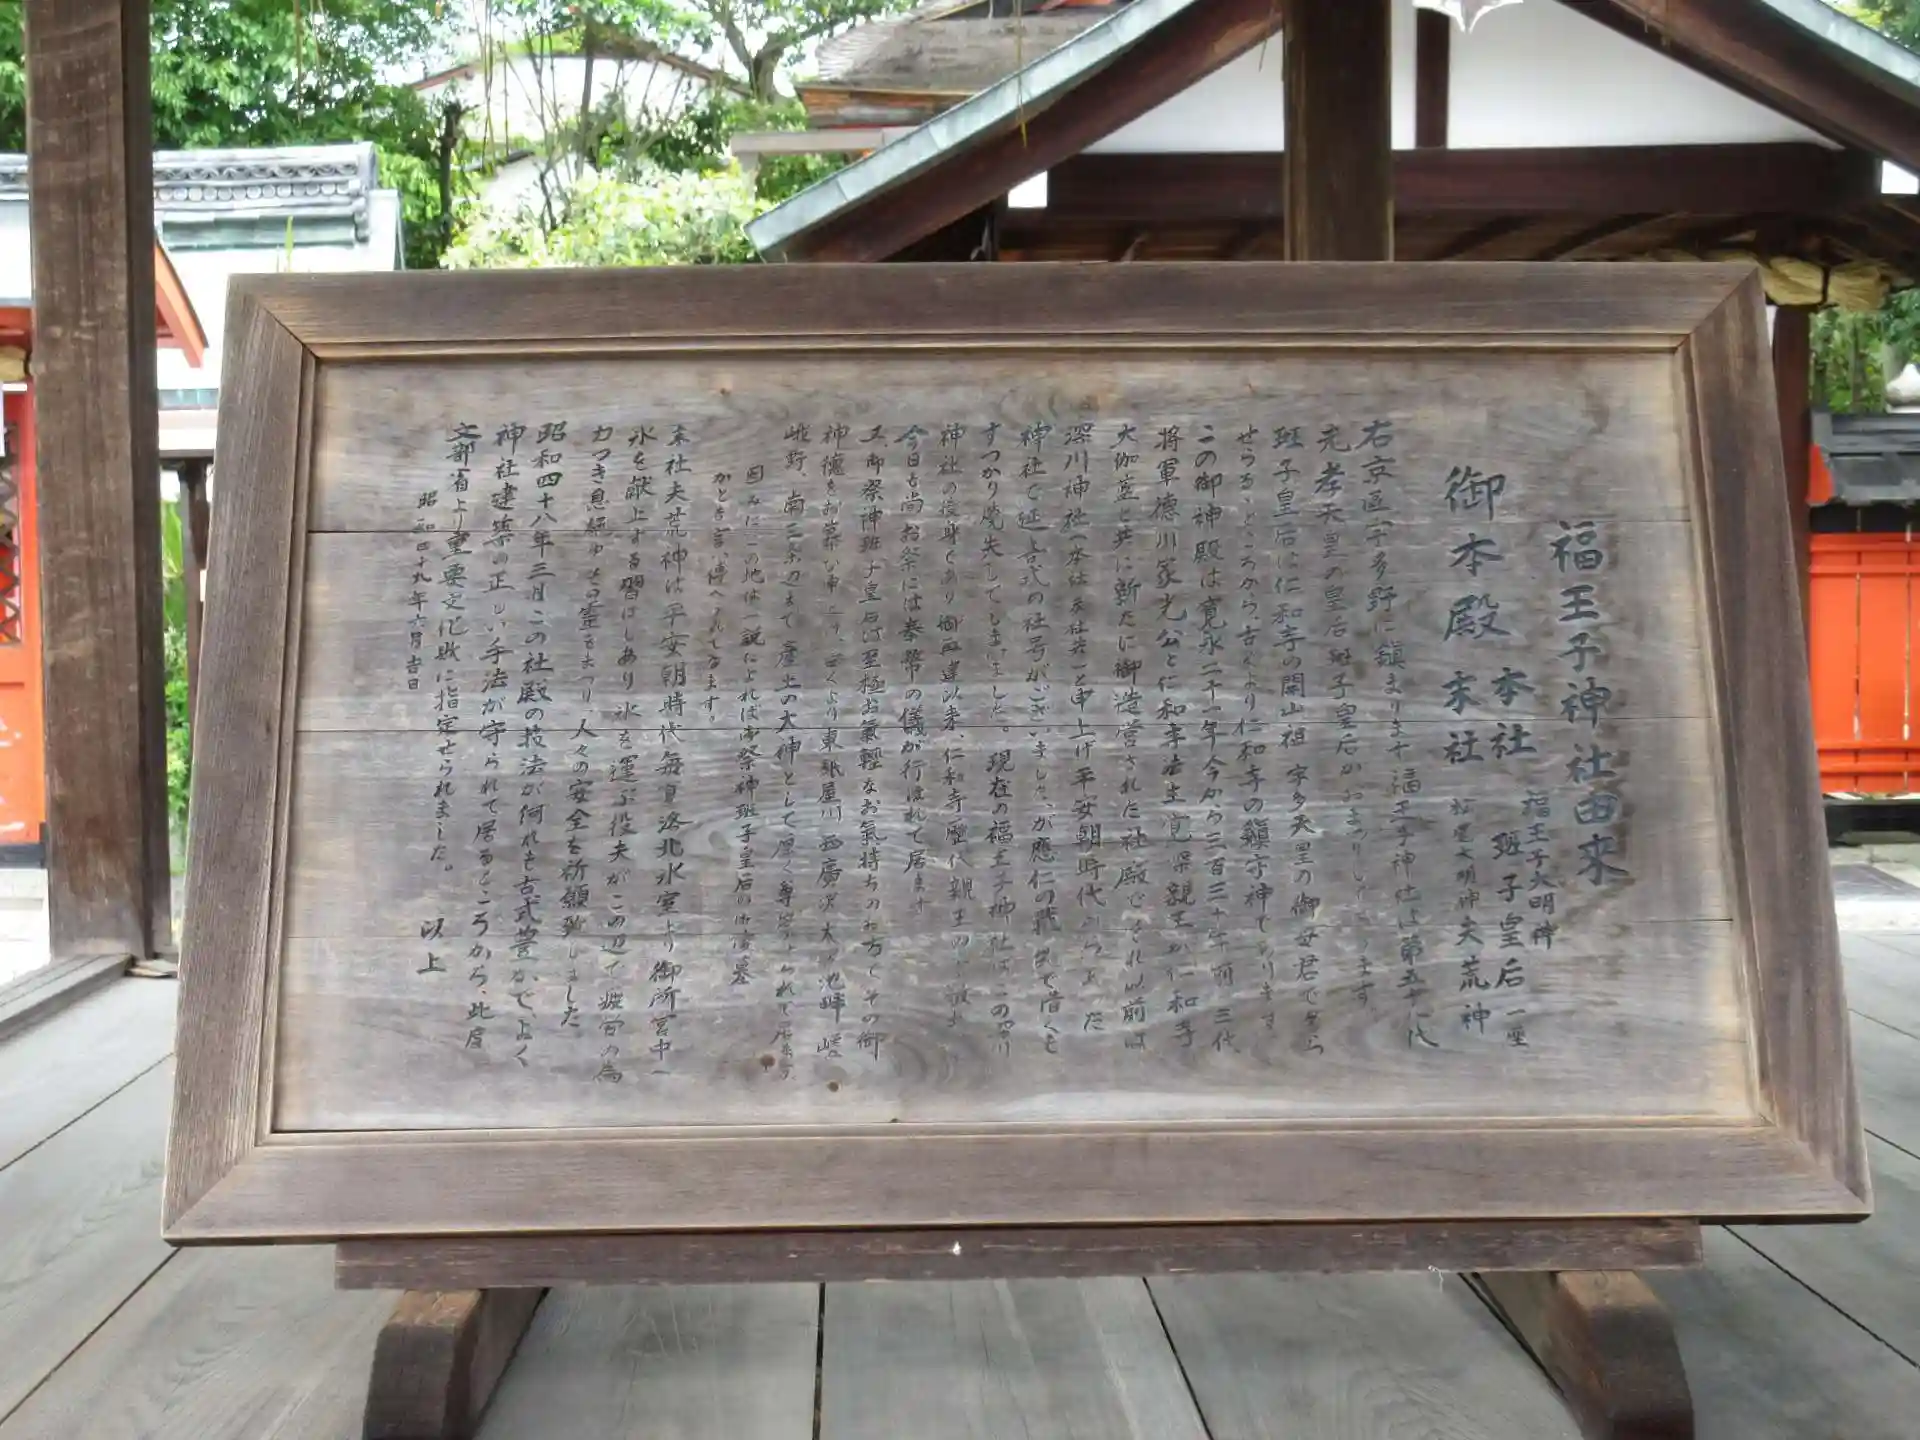 福王子神社由来
御本殿
本社 福王子大明神 班子皇后 一座
末社 松尾大明神 夫荒神
右京区宇多野に鎮まります福王子神社は第五十八代
光孝天皇の皇后班子皇后がおまつりしてあります。
班子皇后は仁和寺の開山祖宇多天皇の御母君であら
せらるゝところから、古くより仁和寺の鎮守神であります
この御神殿は寛永二十一年今から三百三十年前三代
将軍徳川家光公と仁和寺法主覚深親王が仁和寺
大伽藍と共に新たに御造営された社殿で それ以前は
深川神社(本社末社共)と申上げ平安朝時代 からあ った
神社で延喜式の社号がございましたが應仁の戦 で惜くも
すっかり焼失してしまいました。現在の福王子神社は、この深川
神社の後身であり御再建以来、仁和寺歴代親王の
今日も尚お祭には奉幣の儀が行はれて居ます
又、御祭神班子皇后は至極お氣軽なお氣持ちのお方でその御
神徳をお慕ひ申上げ、古くより東紙屋川 西廣沢 池畔 嵯
峨野、南三条辺まで産土の大神として厚く尊崇せられて居ます。
因みにこの地は一説によれば御祭神班子皇后の御陵墓
かとも言い傳へられてゐます。
末社夫荒神は平安朝時代毎夏洛北氷室より御所宮中へ
氷を献上する習はしあり氷を運ぶ役夫がこの辺で疲労の為
力つき息絶ゆその霊をまつり、人々の安全を祈願致しました
昭和四十八年三月この社殿の技法が何れも古式豊かで、よく
神社建築の正しい手法が守られて居るところから、此度
文部省より重要文化財に指定せられました。 以上
昭和四十九年六月吉日